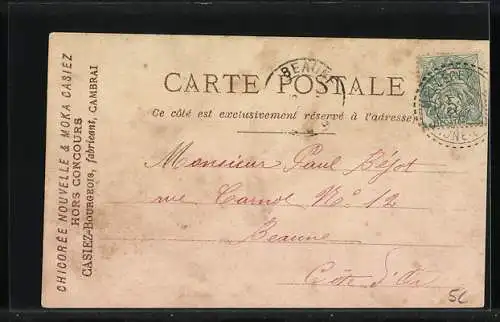 CHICORÉE NOUVELLE & MOKA CASIEZ
HORS CONCOURS
CASIEZ-BOURGEOIS, fabricant, CAMBRAI
BEAUNE
CARTE POSTALE
Ce côté est exclusivement réservé à l'adresse
Monsieur Paul Béjot
rue Carnot N° 12
Beaune
Côte d'Or
5c